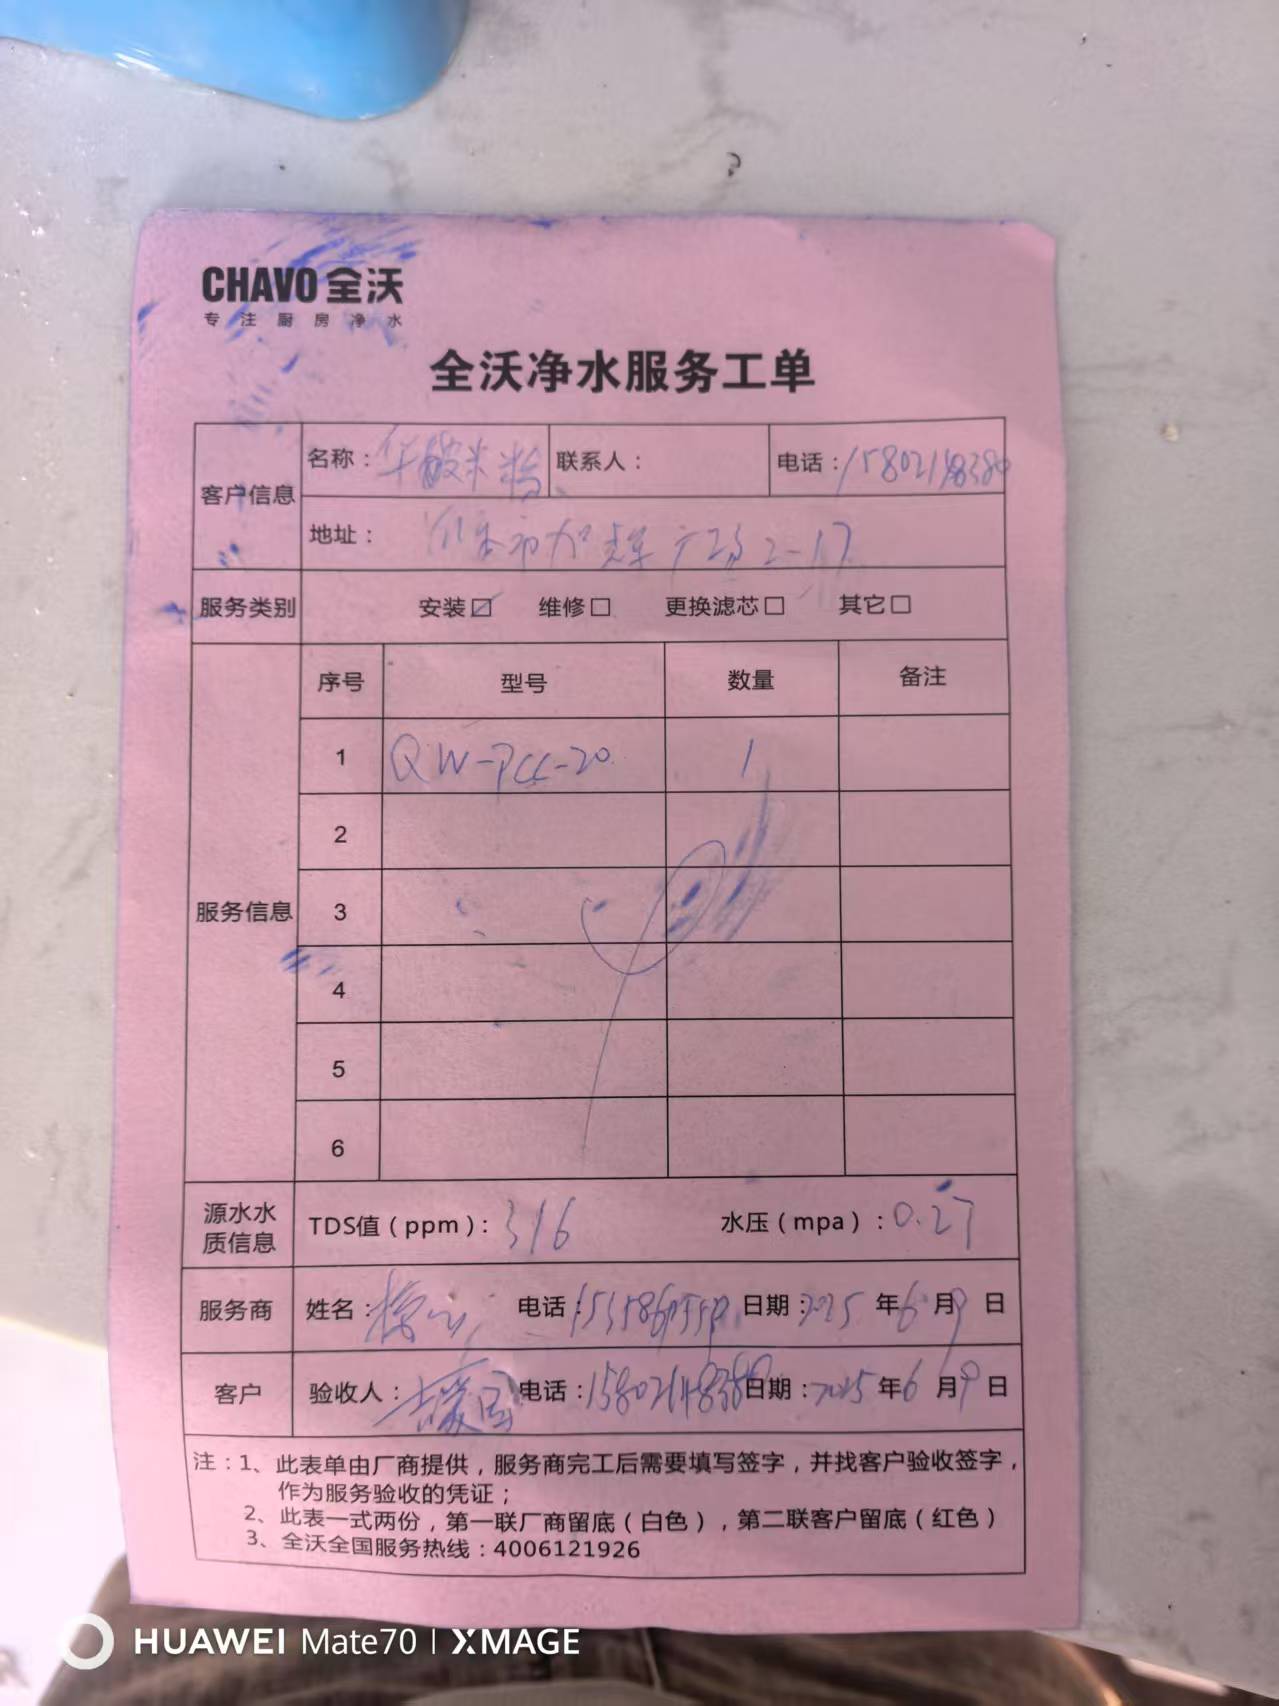 CHAVO 全沃
专注厨房净水
全沃净水服务工单
客户信息
名称： 米粉
联系人：
电话：15802148380
地址： 广场2-17
服务类别
安装☑ 维修□ 更换滤芯□ 其它□
服务信息
序号 型号 数量 备注
1 QW-PCC-20 1
2
3
4
5
6
源水水质信息
TDS值（ppm）：316 水压（mpa）：0.27
服务商 姓名： 电话： 日期：2025年6月9日
客户 验收人： 电话：15802148380 日期：2025年6月9日
注：1、此表单由厂商提供，服务商完工后需要填写签字，并找客户验收签字，
作为服务验收的凭证；
2、此表一式两份，第一联厂商留底（白色），第二联客户留底（红色）
3、全沃全国服务热线：4006121926
HUAWEI Mate70 | XMAGE